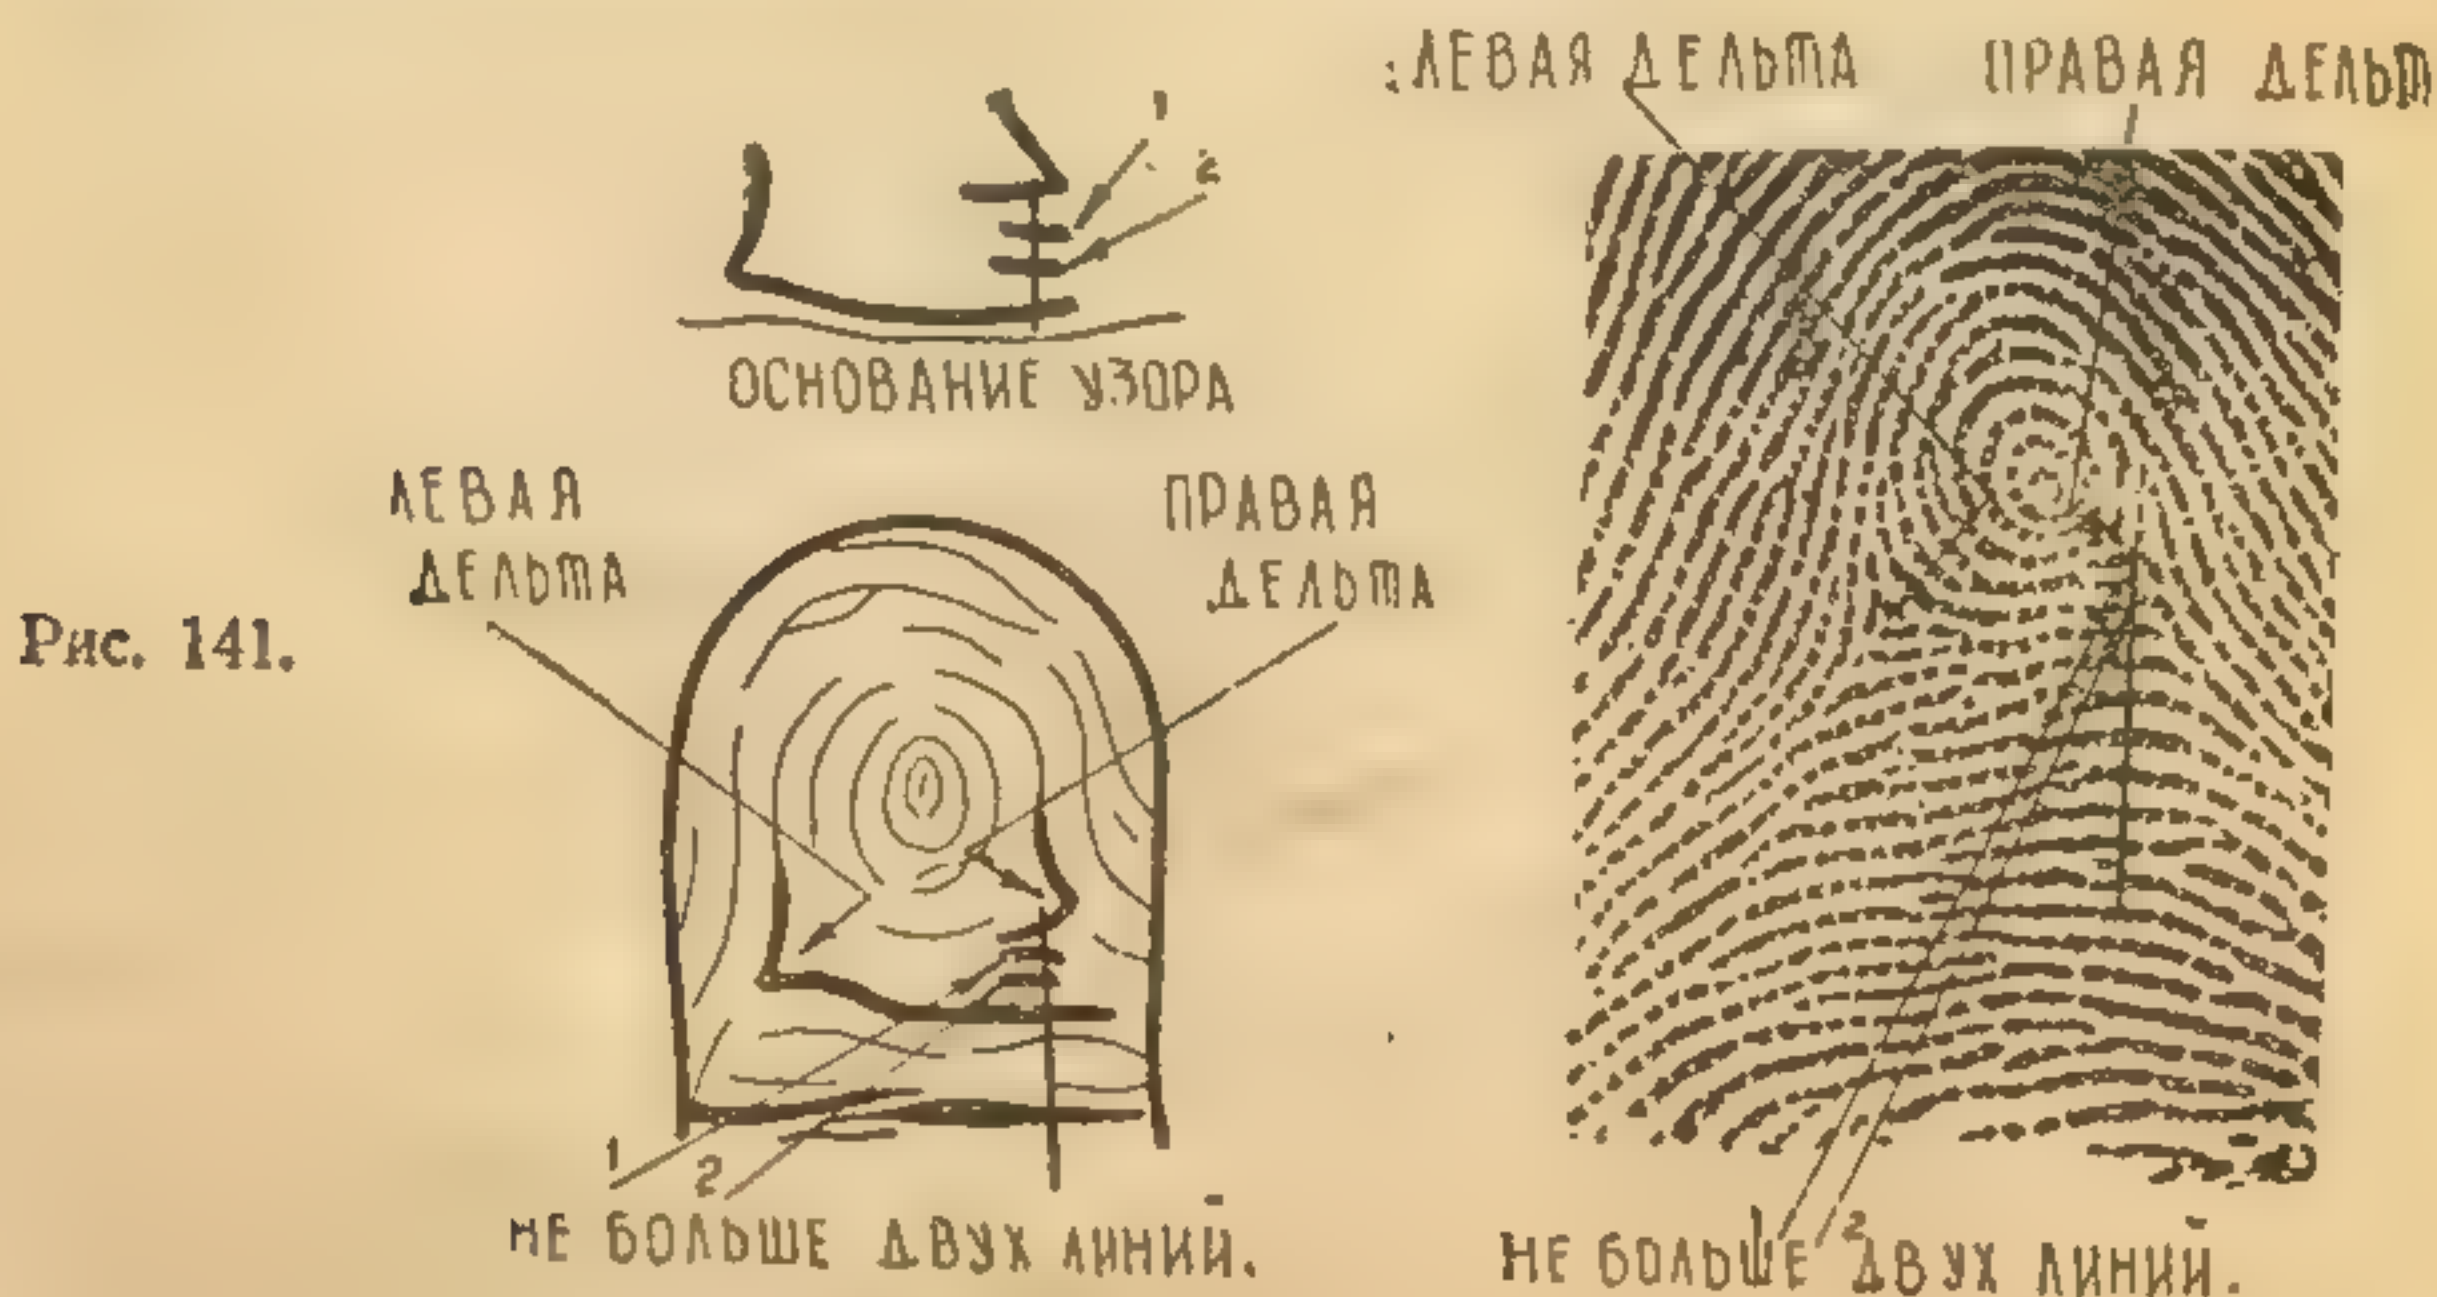 Рис. 141.
1
2
ОСНОВАНИЕ УЗОРА
ЛЕВАЯ
ДЕЛЬТА
ПРАВАЯ
ДЕЛЬТА
1
2
НЕ БОЛЬШЕ ДВУХ ЛИНИЙ.
ЛЕВАЯ ДЕЛЬТА
ПРАВАЯ ДЕЛЬТ
1
2
НЕ БОЛЬШЕ ДВУХ ЛИНИЙ.